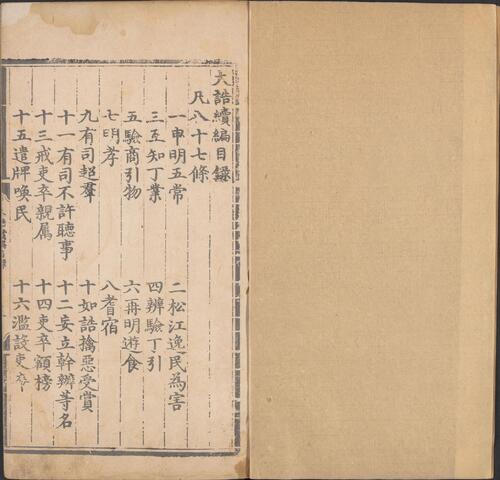 大誥續編目錄
凡八十七條
一申明五常 二松江逸民為害
三互知丁業 四辨驗丁引
五驗商引物 六再明遊食
七明孝 八耆宿
九有司超羣 十如誥擒惡受賞
十一有司不許聽事 十二妄立幹辦等名
十三戒吏卒親属 十四吏卒額榜
十五遣牌喚民 十六濫設吏卒